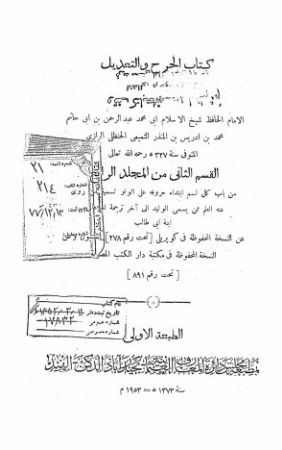 كتاب الجرح والتعديل
الامام الحافظ شيخ الاسلام ابى محمد عبد الرحمن بن ابى حاتم
محمد بن ادريس بن المنذر التميمى الحنظلى الرازى
المتوفى سنة ٣٢٧ ه رحمه الله تعالى
القسم الثانى من المجلد الر
من باب كل اسم ابتداء حروفه على الواو تسمية
عنه العلم ممن يسمى الوليد الى آخر ترجمة
ابنة ابى طالب
عن النسخة المحفوظة فى كوپريلى [تحت رقم ٢٧٨]
النسخة المحفوظة فى مكتبة دار الكتب
[تحت رقم ٨٩١]
٢١
٢١٤
نام كتاب
تاريخ ثبت دفتر
شماره عمومى ١٧٨٣٢
شماره خصوصى
الطبعة الاولى
بمطبعة مجلس دائرة المعارف العثمانية بحيدرآباد الدكن الهند
سنة ١٣٧٣ ه = ١٩٥٣ م